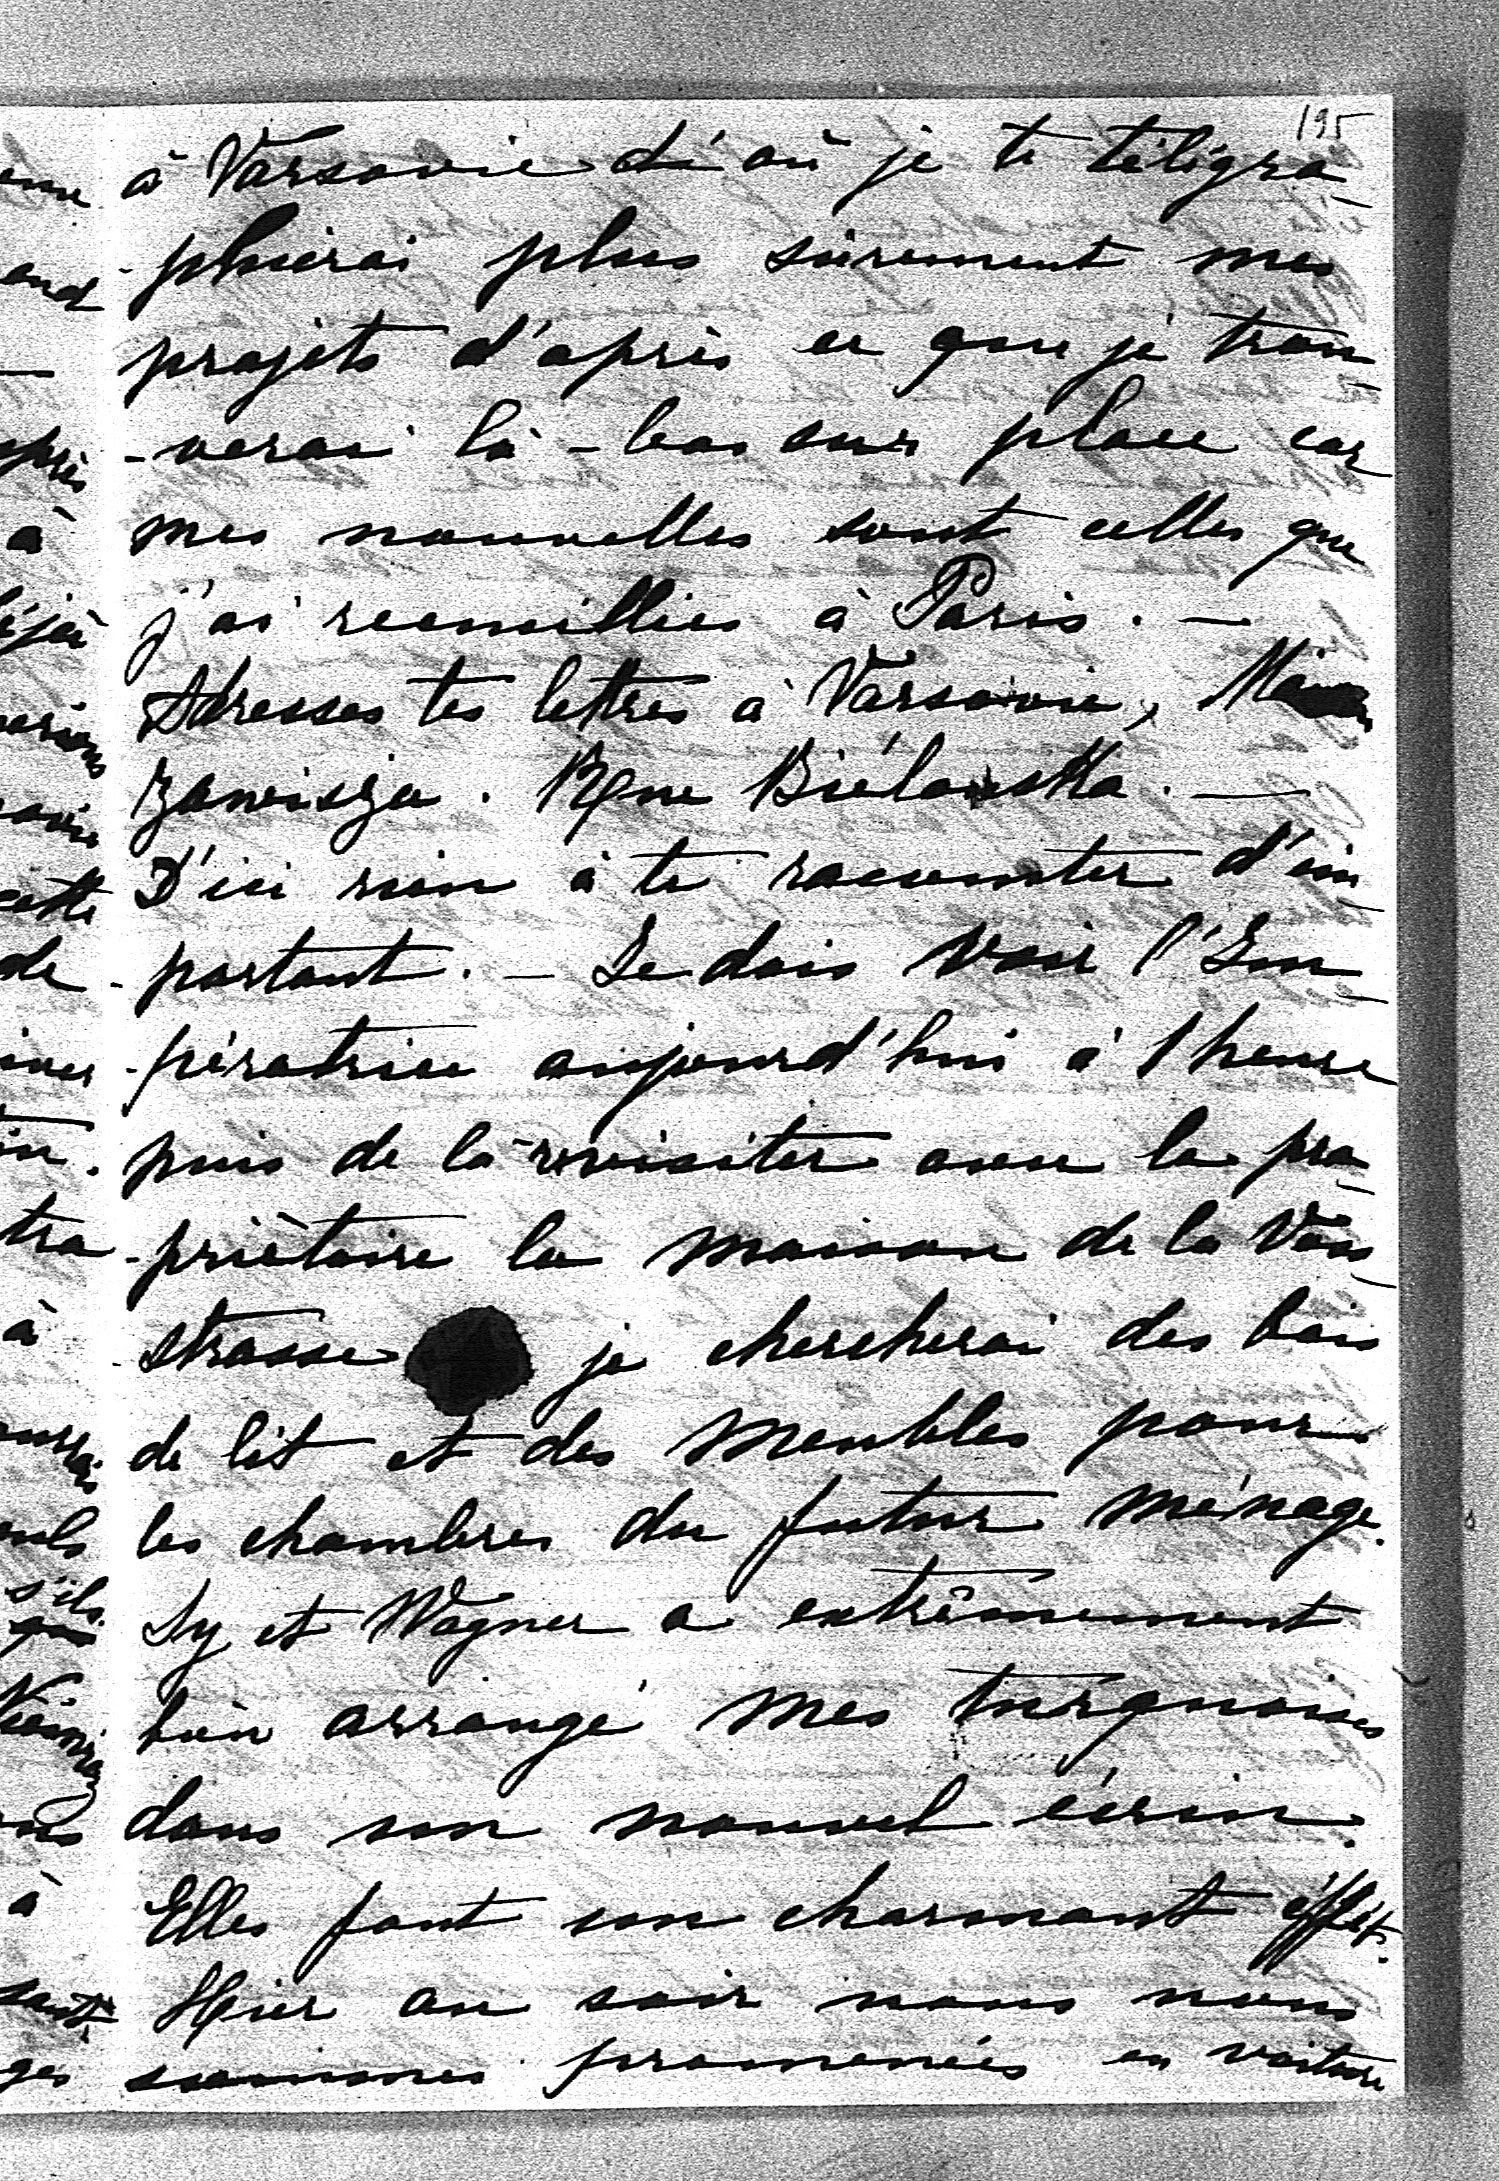 195
à Varsovie d'où je te télégra-
-phierai plus sûrement mes
projets d'après ce que je trou-
-verai là-bas sur place car
mes nouvelles sont celles que
j'ai recueillies à Paris. —
Adresses tes lettres à Varsovie,
Zawisza. Rue Biélanska. —
D'ici rien à te raconter d'im-
-portant. — Je dois voir l'Im-
-pératrice aujourd'hui à 1 heure
puis de là revisiter avec la pro-
-priètaire la maison de la Voss
strasse je chercherai des bois
de lit et des meubles pour
les chambres du futur ménage.
Sy et Wagner a extrêmement
bien arrangé mes turquoises
dans son nouvel écrin.
Elles font un charmant effet.
Hier au soir nous nous
sommes promenés en voiture